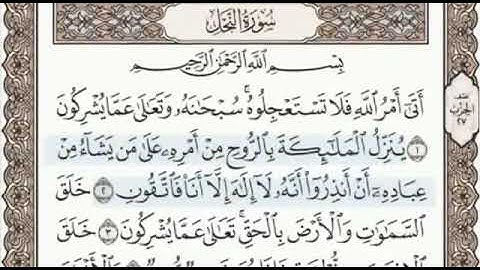 سُورَةُ النَّحْلِ
بِسْمِ اللَّهِ الرَّحْمَٰنِ الرَّحِيمِ
أَتَىٰ أَمْرُ اللَّهِ فَلَا تَسْتَعْجِلُوهُ ۚ سُبْحَانَهُ وَتَعَالَىٰ عَمَّا يُشْرِكُونَ
١ يُنَزِّلُ الْمَلَائِكَةَ بِالرُّوحِ مِنْ أَمْرِهِ عَلَىٰ مَن يَشَاءُ مِنْ
عِبَادِهِ أَنْ أَنذِرُوا أَنَّهُ لَا إِلَٰهَ إِلَّا أَنَا فَاتَّقُونِ ٢ خَلَقَ
السَّمَاوَاتِ وَالْأَرْضَ بِالْحَقِّ ۚ تَعَالَىٰ عَمَّا يُشْرِكُونَ ٣ خَلَقَ
نصف
الحزب
٢٧